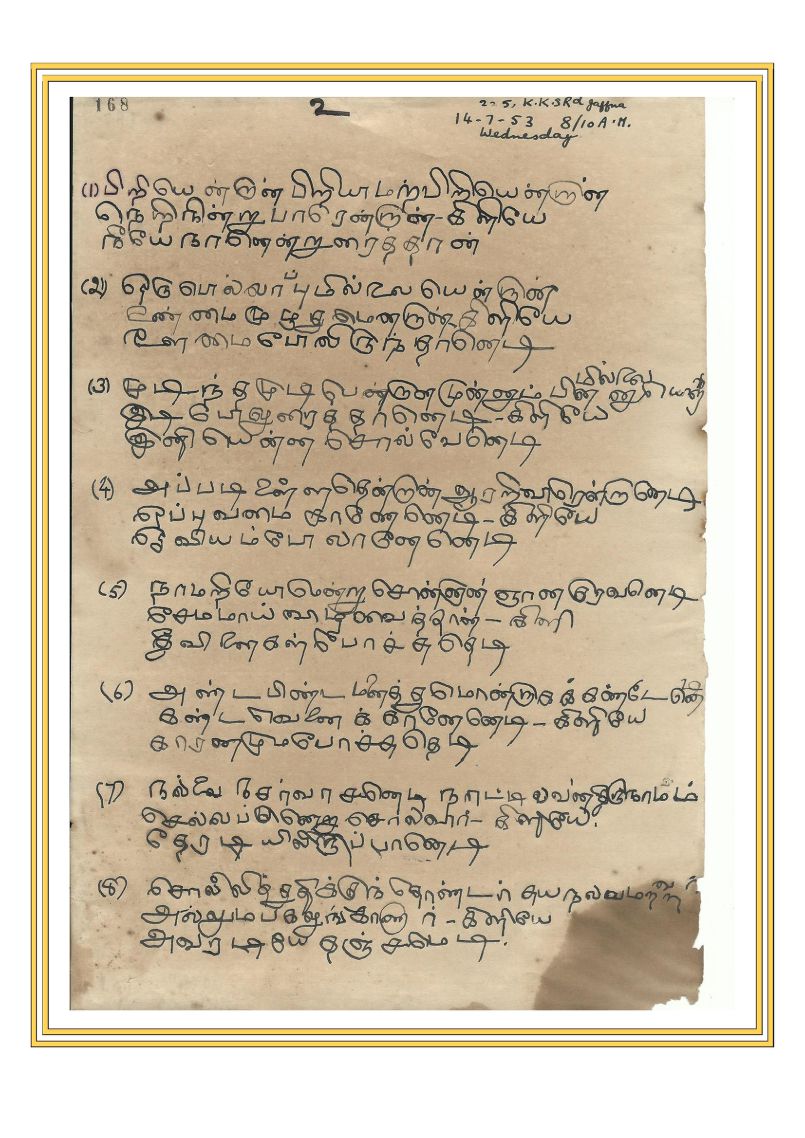 168
2
2-5, K.K.S Rd Jaffna
14-7-53 8/10 A.M.
Wednesday
(1) பிறியென்றான் பிறியாமற்பிறியென்றான்
நெறிநின்று பாரென்றான்-கிளியே
நீயே நானென்றுரைத்தான்
(2) ஒருபொல்லாப்புமில்லை யென்றான்
உண்மை முழுதுமென்றான்-கிளியே
ஊமைபோலிருந்தானெடி
(3) முடிந்தமுடிபென்றான் முன்னும் பின்னுமில்லை
கிளியே
இனி யென்ன சொல்வேனெடி
(4) அப்படி உள்ளதென்றான் ஆரறிவாரென்றானெடி
ஒப்புவமை காணேனெடி-கிளியே
ஓவியம்போலானேனெடி
(5) நாமறியோமென்று சொன்னான் ஞானகுரவனெடி
சேமமாய் வாழவைத்தான்-கிளி
இருவினைகள்போச்சுதெடி
(6) அண்டபிண்டமனைத்துமொன்றாகக்கண்டேனெடி
கண்டவெனைக் காணேனெடி-கிளியே
காரணமும்போச்சுதெடி
(7) நல்லை நகர்வாசனெடி நாட்டிலவன்
செல்லப்பனென்று சொல்வார்-கிளியே.
தேரடியிலிருப்பானெடி
(8) சொல்லித்துதிக்குந் தொண்டர் சுயநலமற்றார்
அல்லும்பகலுங்காணார்-கிளியே
அவரடியே தஞ்சமெடி.